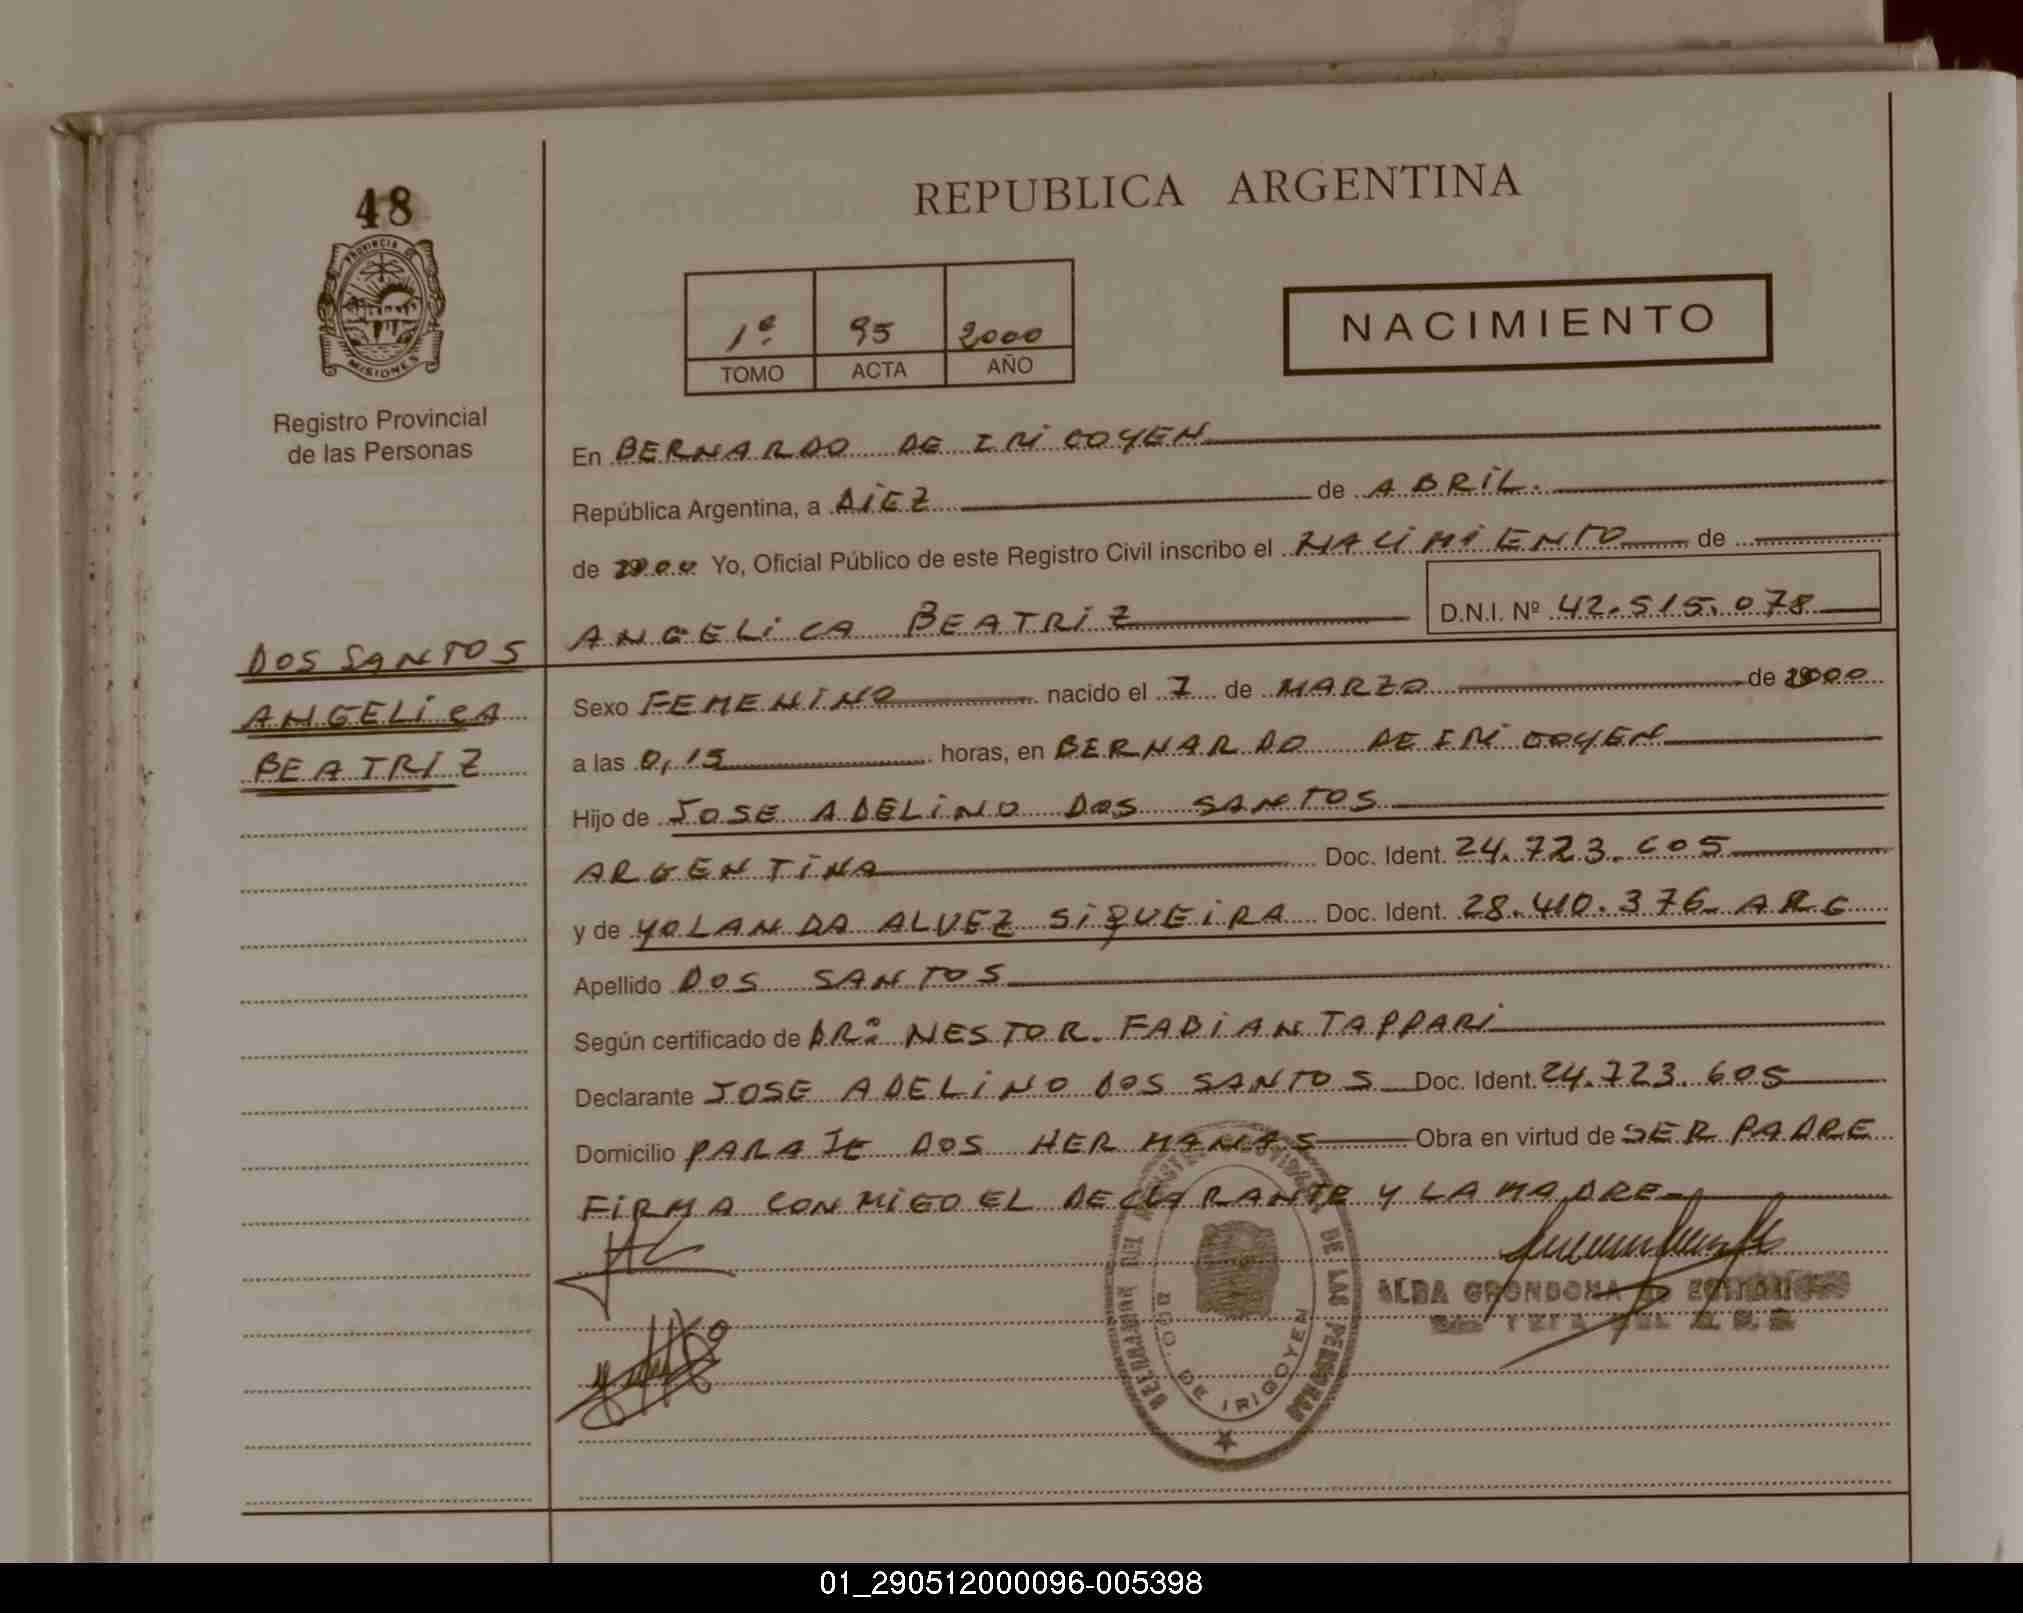 48
REPUBLICA ARGENTINA
PROVINCIA DE
MISIONES
Registro Provincial
de las Personas
1º 95 2000
TOMO ACTA AÑO
NACIMIENTO
En BERNARDO DE IRIGOYEN
República Argentina, a DIEZ de ABRIL.
de 2000 Yo, Oficial Público de este Registro Civil inscribo el NACIMIENTO de
ANGELICA BEATRIZ D.N.I. Nº 42.515.078
DOS SANTOS
ANGELICA
BEATRIZ
Sexo FEMENINO nacido el 7 de MARZO de 2000
a las 0,15 horas, en BERNARDO DE IRIGOYEN
Hijo de JOSE ADELINO DOS SANTOS
ARGENTINA Doc. Ident. 24.723.605
y de YOLANDA ALVEZ SIQUEIRA Doc. Ident. 28.410.376 ARG
Apellido DOS SANTOS
Según certificado de DR: NESTOR FABIAN TAPPARI
Declarante JOSE ADELINO DOS SANTOS Doc. Ident. 24.723.605
Domicilio PARAJE DOS HERMANAS Obra en virtud de SER PADRE
FIRMA CONMIGO EL DECLARANTE Y LA MADRE
DE LAS PERSONAS
BDO. DE IRIGOYEN
ALBA GRONDONA
01_290512000096-005398